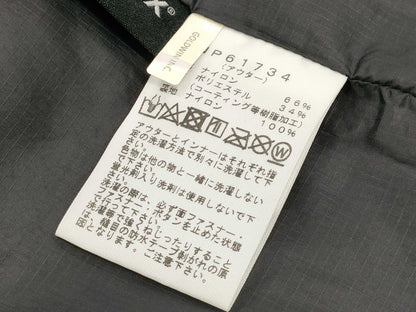 X®
GOLDWIN INC
P61734
(アウター)
ナイロン 66%
ポリエステル 34%
(コーティング等樹脂加工)
裏地
ナイロン 100%
W
アウターとインナーはそれぞれ指
定の洗濯方法で別々に洗濯して下
色物は他の物と一緒に洗濯しない
蛍光剤入り洗剤は使用しないで下
洗濯の際は、必ず面ファスナー、
ファスナー、ボタンを止めた状態
で行って下さい。
洗濯等で強くねじったりすること
は、縫目の防水テープ剥がれの原
因となります。ご注意下さい。